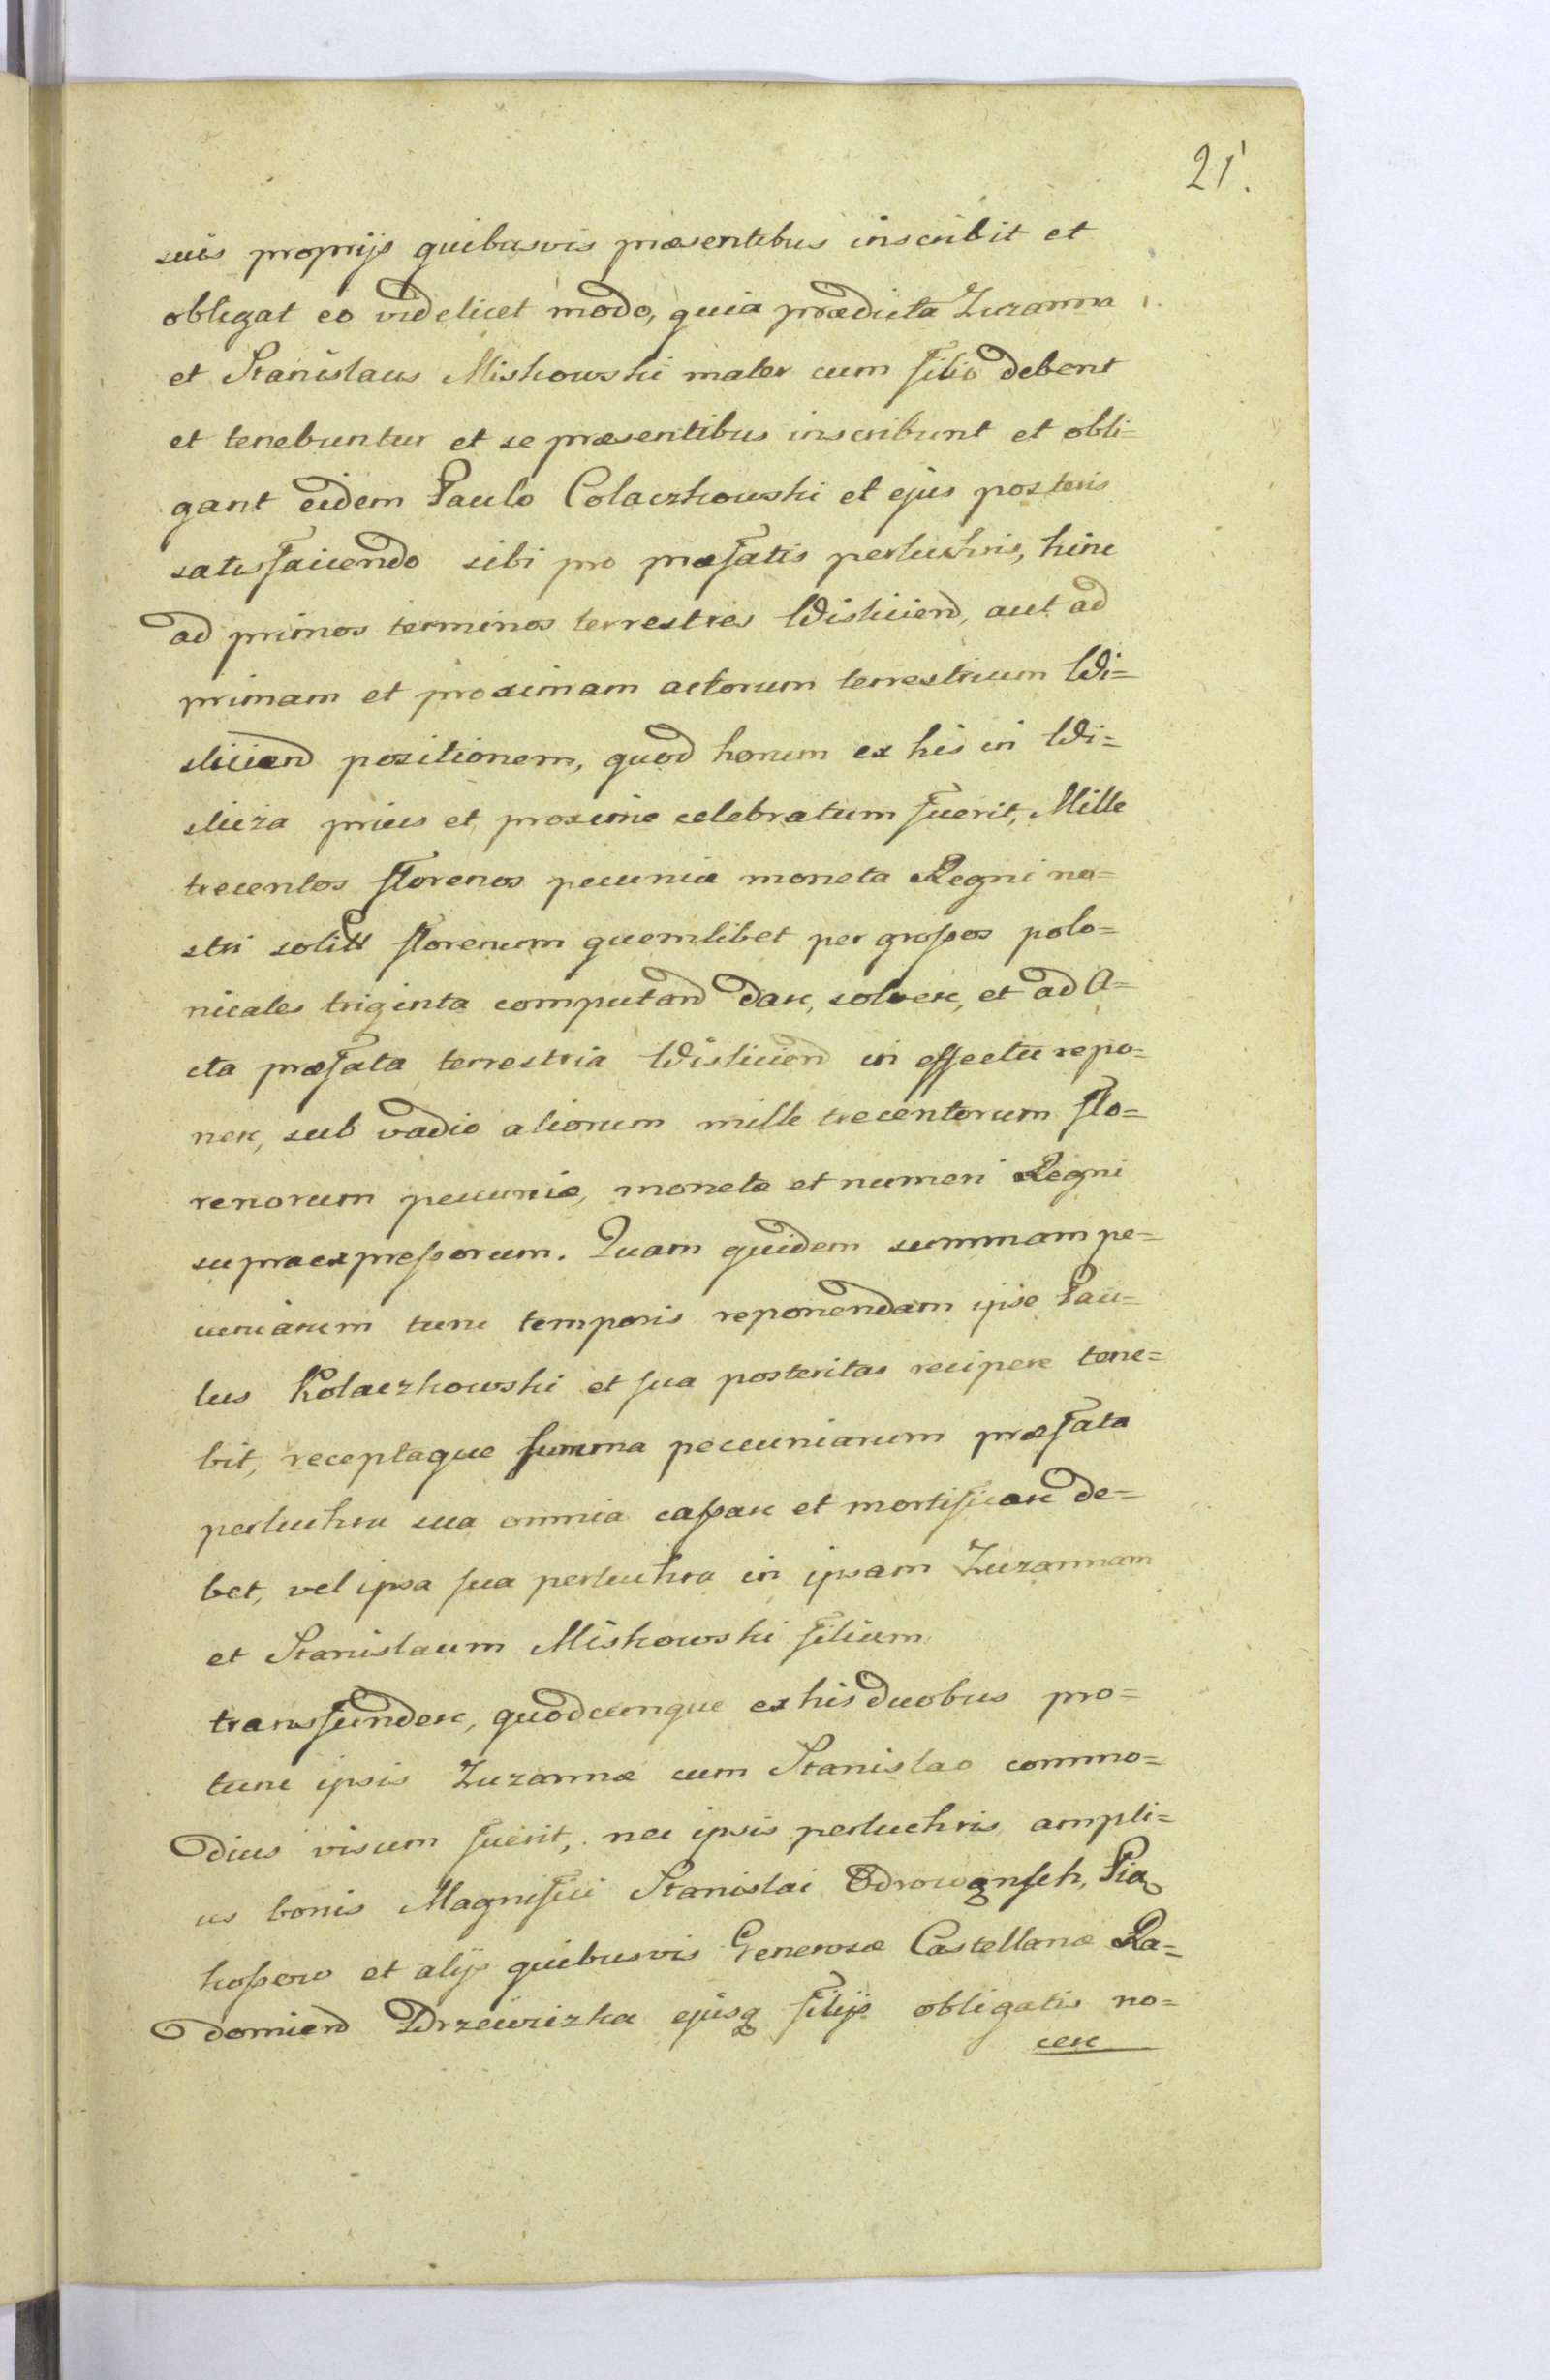 21.
suis proprijs quibusvis præsentibus inscribit et
obligat eo videlicet modo, quia prædicta Zuzanna
et Stanislaus Miskowski mater cum filio debent
et tenebuntur et se præsentibus inscribunt et obli=
gant eidem Paulo Colaczkowski et ejus posteris
satisfaciendo sibi pro præfatis perlucris, hinc
ad primos terminos terrestres Wislicien, aut ad
primam et proximam actorum terrestrium Wi=
slicien positionem, quod horum ex his in Wi=
slicza prius et proxime celebratum fuerit, Mille
trecentos florenos pecuniæ moneta Regni no=
stri solitt florenum quemlibet per grossos polo=
nicales triginta computand dare, solvere, et ad A=
cta præfata terrestria Wislicien in effectu repo=
nere, sub vadio aliorum mille trecentorum flo=
renorum pecuniæ, monetæ et numeri Regni
supraexpressorum. Quam quidem summam pe=
cuniarum tunc temporis reponendam ipse Pau=
lus Kolaczkowski et sua posteritas recipere tene=
bit, receptaque summa pecuniarum præfata
perluchra sua omnia cassare et mortificare de=
bet, vel ipsa sua perluchra in ipsam Zuzannam
et Stanislaum Miskowski filium
transfundere, quodcunque ex his duobus pro=
tunc ipsis Zuzannæ cum Stanislao commo=
dius visum fuerit, nec ipsis perluchris ampli=
us bonis Magnifici Stanislai Odrowąnsch, Pia
kossero et alijs quibusvis Generosæ Castellanæ Ra=
domien Drzewiczka ejusq filijs obligatis no=
cere